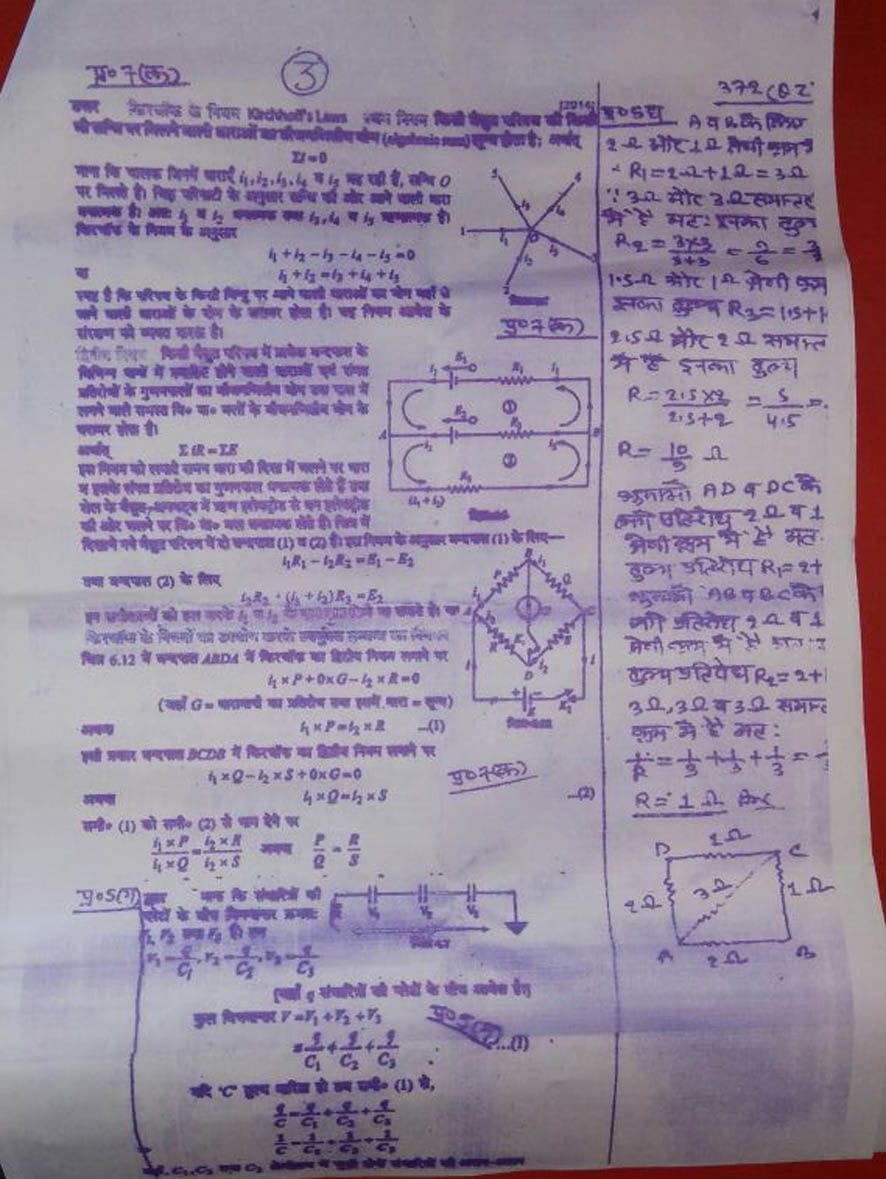 प्र० 7(क)
3
किरचॉफ के नियम Kirchhoff's Laws प्रथम नियम किसी वैद्युत परिपथ की किसी
भी सन्धि पर मिलने वाली धाराओं का बीजगणितीय योग (algebraic sum) शून्य होता है; अर्थात्
Σi=0
माना कि चालक जिनमें धाराएँ i₁, i₂, i₃, i₄ व i₅ बह रही हैं, सन्धि O
पर मिलते हैं। चिह्न परिपाटी के अनुसार सन्धि की ओर आने वाली धारा
धनात्मक है। अतः i₁ व i₂ धनात्मक तथा i₃, i₄ व i₅ ऋणात्मक हैं।
किरचॉफ के नियम के अनुसार
i₁ + i₂ - i₃ - i₄ - i₅ = 0
या
i₁ + i₂ = i₃ + i₄ + i₅
स्पष्ट है कि परिपथ के किसी बिन्दु पर आने वाली धाराओं का योग वहाँ से
जाने वाली धाराओं के योग के बराबर होता है। यह नियम आवेश के
संरक्षण को व्यक्त करता है।
प्र० 7(क)
द्वितीय नियम किसी वैद्युत परिपथ में प्रत्येक बन्दपाश के
विभिन्न खण्डों में प्रवाहित होने वाली धाराओं एवं संगत
प्रतिरोधों के गुणनफलों का बीजगणितीय योग उस पाश में
लगने वाली समस्त वि० वा० बलों के बीजगणितीय योग के
बराबर होता है।
अर्थात् Σ iR = ΣE
इस नियम को लगाते समय धारा की दिशा में चलने पर धारा
व इसके संगत प्रतिरोध का गुणनफल धनात्मक लेते हैं तथा
सेल के वैद्युत-अपघट्य में ऋण इलेक्ट्रोड से धन इलेक्ट्रोड
की ओर चलने पर वि० वा० बल धनात्मक लेते हैं। चित्र में
दिखाये गये वैद्युत परिपथ में दो बन्दपाश (1) व (2) हैं। इस नियम के अनुसार बन्दपाश (1) के लिए—
i₁R₁ - i₂R₂ = E₁ - E₂
तथा बन्दपाश (2) के लिए
i₂R₂ + (i₁ + i₂)R₃ = E₂
चित्र 6.12 में बन्दपाश ABDA में किरचॉफ का द्वितीय नियम लगाने पर
i₁ × P + 0 × G - i₂ × R = 0
(यहाँ G = धारामापी का प्रतिरोध तथा इसमें धारा = शून्य)
अथवा i₁ × P = i₂ × R ...(1)
इसी प्रकार बन्दपाश BCDB में किरचॉफ का द्वितीय नियम लगाने पर
i₁ × Q - i₂ × S + 0 × G = 0
प्र० 7(क)
अथवा i₁ × Q = i₂ × S ...(2)
समी० (1) को समी० (2) से भाग देने पर
i₁ × P / i₁ × Q = i₂ × R / i₂ × S अथवा P/Q = R/S
प्र० 5(ग)
माना कि संधारित्रों की
प्लेटों के बीच विभवान्तर क्रमशः
V₁, V₂ तथा V₃ हैं। तब
V₁ = q/C₁, V₂ = q/C₂, V₃ = q/C₃
[यहाँ q संधारित्रों की प्लेटों के बीच आवेश है]
कुल विभवान्तर V = V₁ + V₂ + V₃
= q/C₁ + q/C₂ + q/C₃ ...(1)
यदि 'C' तुल्य धारिता हो तब समी० (1) से,
q/C = q/C₁ + q/C₂ + q/C₃
1/C = 1/C₁ + 1/C₂ + 1/C₃
372 (
प्र० 5 घ
A व B के लिए
2 Ω और 1 Ω श्रेणी क्रम
R₁ = 2Ω + 1Ω = 3Ω
∵ 3Ω और 3Ω समान्तर
में है अतः इनका तुल्य
R₂ = 3×3 / 3+3 = 9/6 = 3
1.5Ω और 1Ω श्रेणी क्रम
इनका तुल्य R₃ = 1.5 + 1
2.5Ω और 2Ω समान्त
में है इनका तुल्य
R = 2.5 × 2 / 2.5 + 2 = 5 / 4.5 =
R = 10/9 Ω
भुजाओं AD व DC के
प्रतिरोध 2Ω व 1
श्रेणी क्रम में है अतः
तुल्य प्रतिरोध R₁ = 2+
भुजाओं AB व BC के
प्रतिरोध 2Ω व 1
श्रेणी क्रम में है अतः
तुल्य प्रतिरोध R₂ = 2+1
3Ω, 3Ω व 3Ω समान्त
क्रम में है अतः
1/R = 1/3 + 1/3 + 1/3 =
R = 1 Ω
1Ω
D C
2Ω 3Ω 1Ω
A B
2Ω